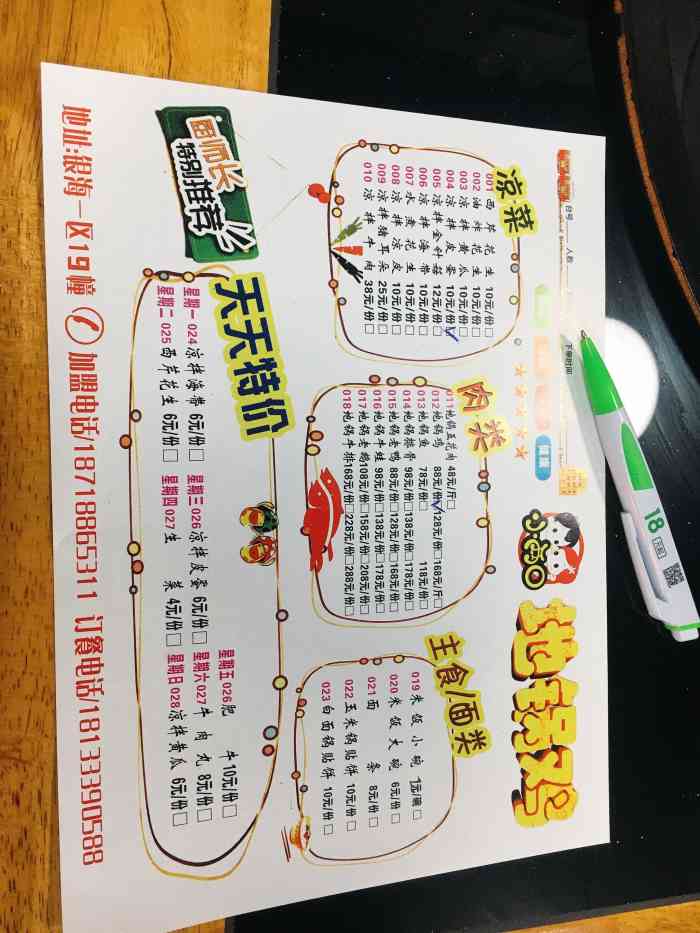 地锅鸡
台号
人数
下单时间
凉菜
001 西芹花生 10元/份
002 油炸花生 10元/份
003 凉拌黄瓜 10元/份
004 凉拌皮蛋 10元/份
005 凉拌金针菇 12元/份
006 凉拌海带 10元/份
007 水煮花生 10元/份
008 凉拌凉皮 10元/份
009 凉拌猪耳朵 25元/份
010 凉拌牛肉 38元/份
肉类
011 地锅五花肉 48元/斤
012 地锅鸡 88元/份 128元/份 168元/斤
013 地锅鱼 78元/份 118元/份
014 地锅排骨 98元/份 138元/份 178元/份
015 地锅老鸭 88元/份 128元/份 168元/份
016 地锅牛蛙 98元/份 138元/份 178元/份
017 地锅老鹅 108元/份 158元/份 208元/份
018 地锅牛排 168元/份 228元/份 288元/份
主食/面类
019 米饭小碗 1元/碗
020 米饭大碗 6元/份
021 面条 8元/份
022 玉米锅贴饼 10元/份
023 白面锅贴饼 10元/份
厨师长
特别推荐
天天特价
星期一 024 凉拌海带 6元/份
星期二 025 西芹花生 6元/份
星期三 026 凉拌皮蛋 6元/份
星期四 027 生菜 4元/份
星期五 026 肥牛 10元/份
星期六 027 牛肉丸 8元/份
星期日 028 凉拌黄瓜 6元/份
地址:银海一区19幢 加盟电话/18718865311 订餐电话/18133390588
18